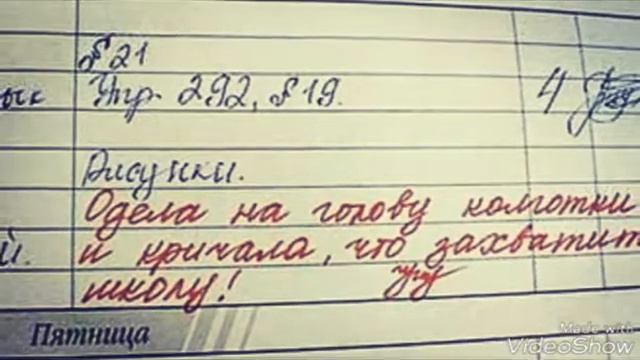 § 21
Упр. 292, § 19. 4
Рисунки.
Одела на голову колготки
й. и кричала, что захватит
школу!
Пятница
Made with
VideoShow